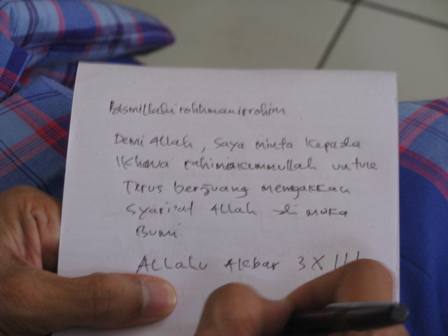 Bismillahi rohhmanirrohim
Demi Allah, saya minta kepada
Ikhwa rahimakumullah untuk
Terus berjuang menegakkan
Syari'at Allah di muka
Bumi
Allahu Akbar 3X !!!